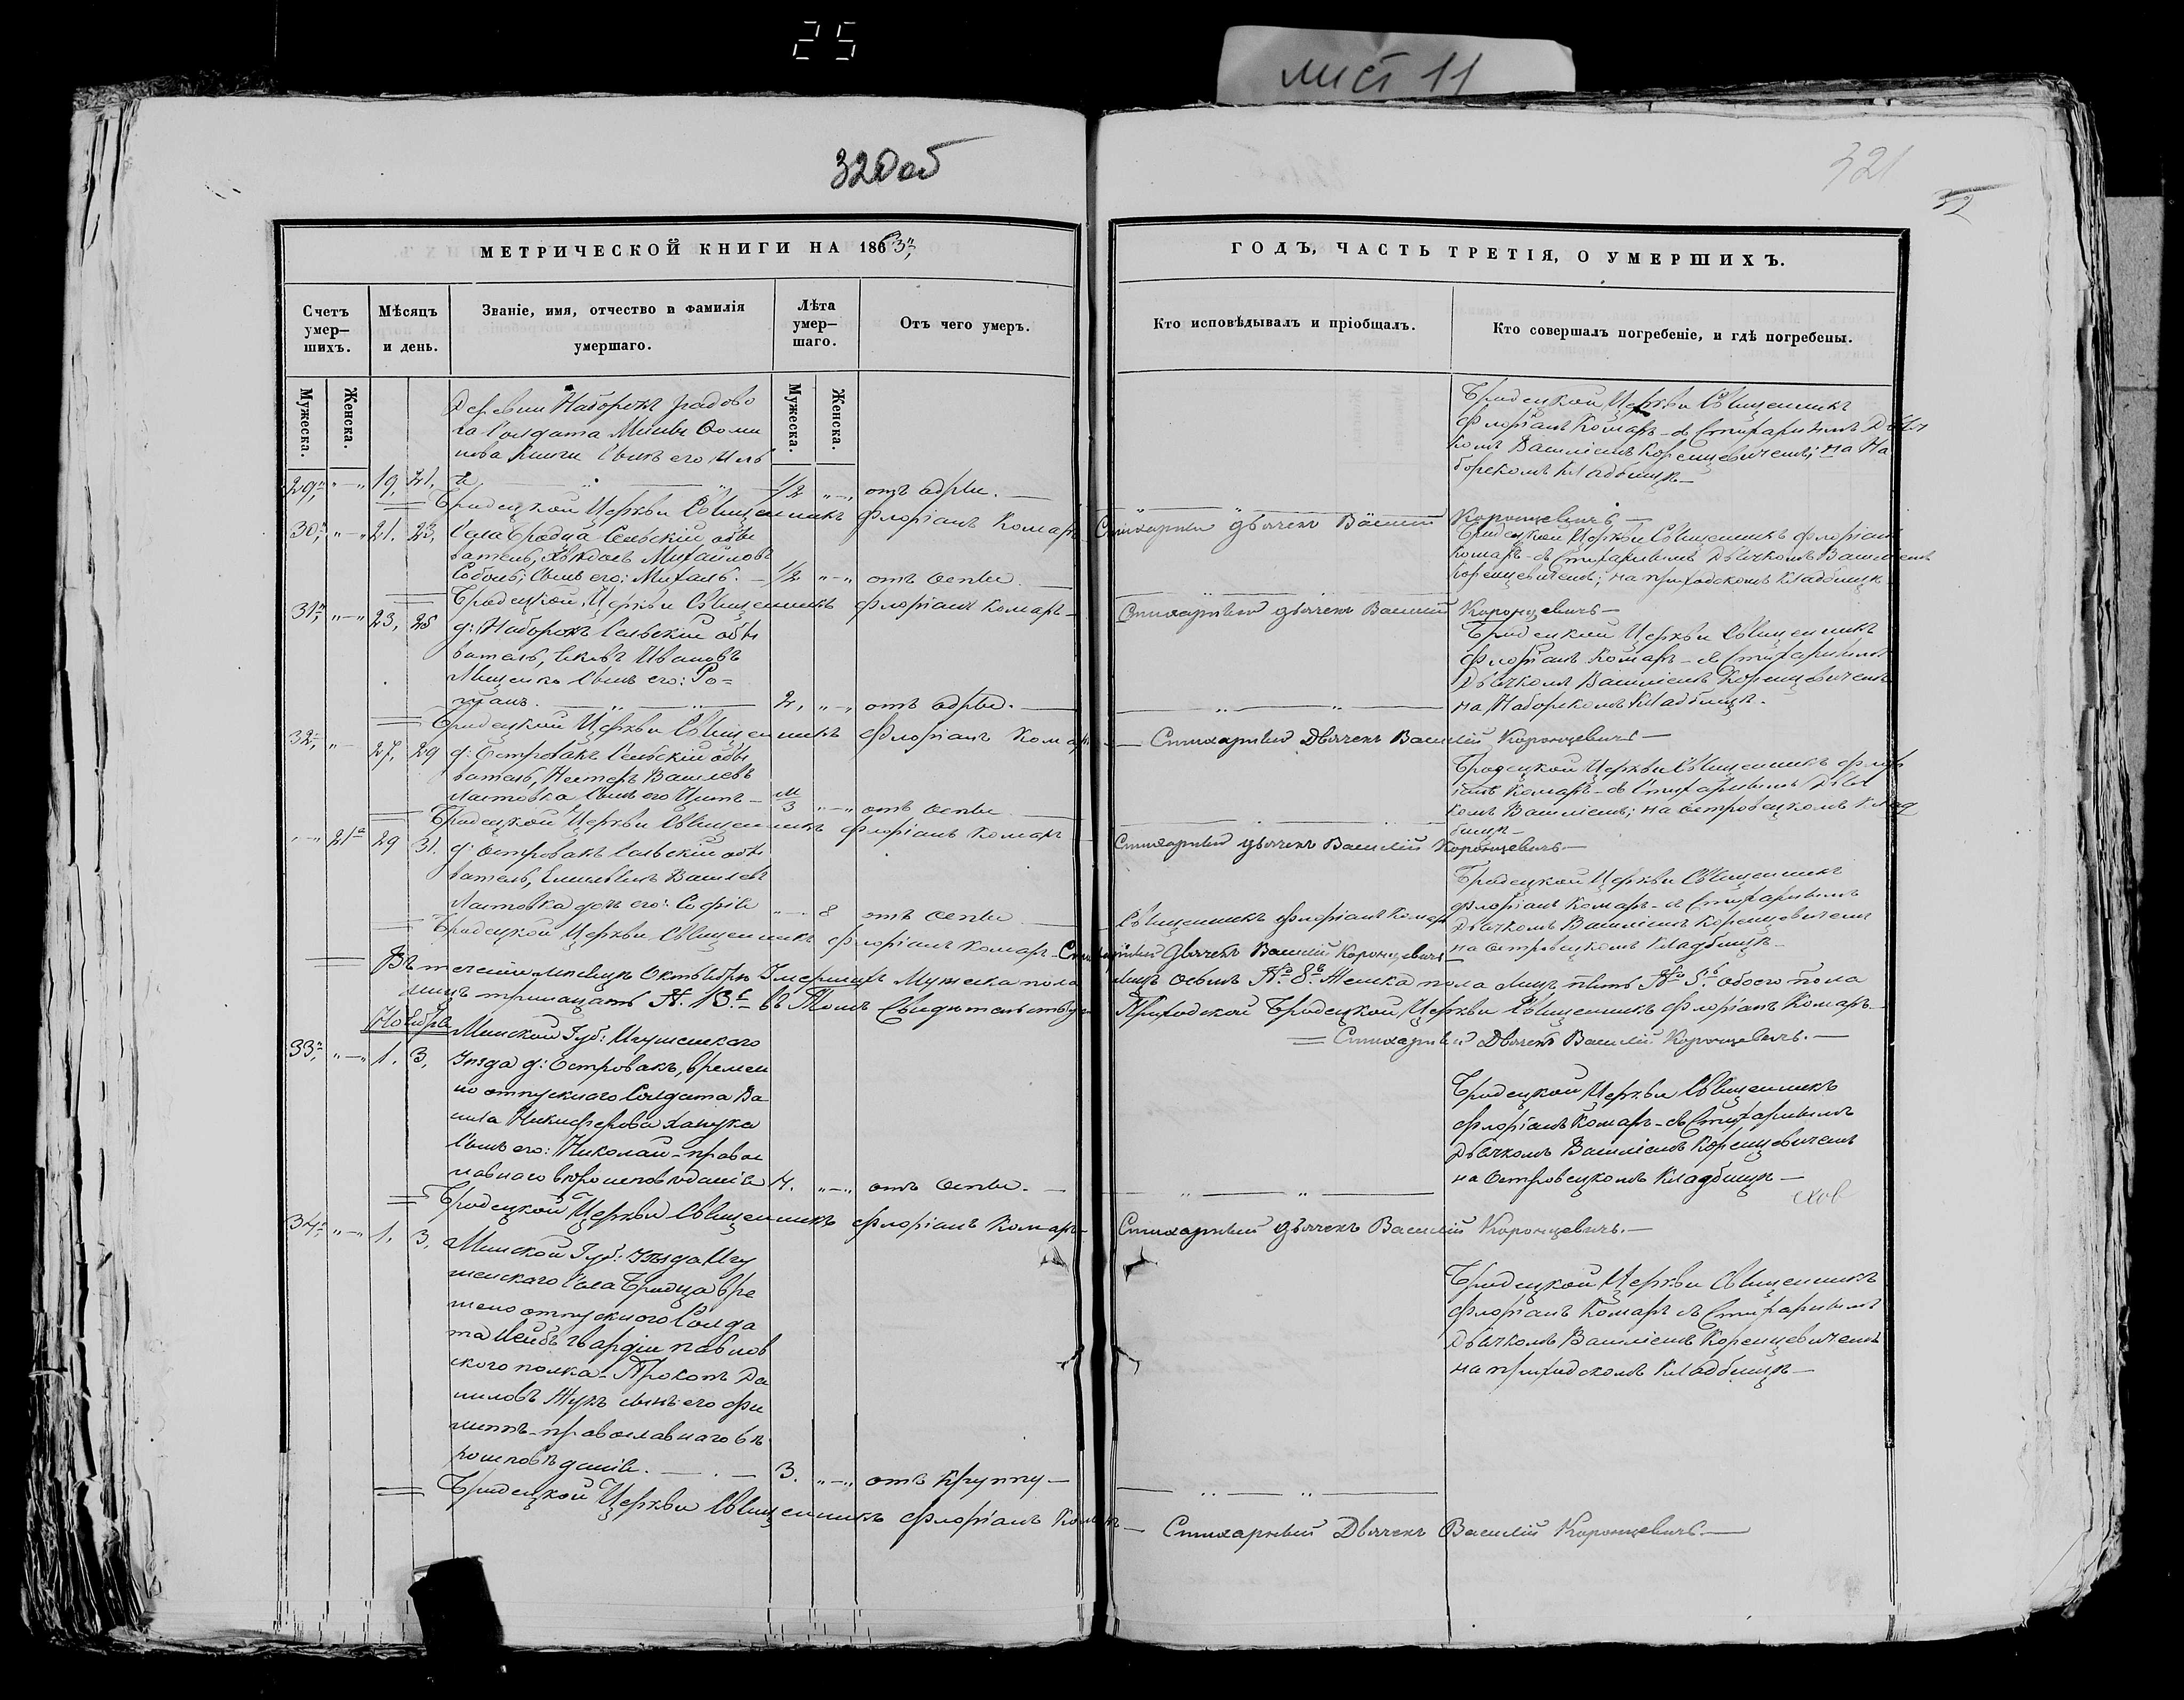 25
лист 11
320об
321
32
МЕТРИЧЕСКОЙ КНИГИ НА 1863й
ГОДЪ, ЧАСТЬ ТРЕТІЯ, О УМЕРШИХЪ.
Счетъ умер-шихъ.
Мѣсяцъ и день.
Званіе, имя, отчество и фамилія умершаго.
Лѣта умер-шаго.
Отъ чего умеръ.
Кто исповѣдывалъ и пріобщалъ.
Кто совершалъ погребеніе, и гдѣ погребены.
Мужеска.
Женска.
Мужеска.
Женска.
Деревни Наборокъ рядово
го Солдата
сынъ его Илья
29. 19. 21. 1/2 отъ одры.
Бродецкой Церкви Священникъ
Флоріанъ Комаръ съ Стихарнымъ Дьяч
комъ Василіемъ Коренцевичемъ; на На
борскомъ кладбищѣ
Бродецкой Церкви Священникъ Флоріанъ Комаръ Стихарный дьячекъ Василій Коронцевичъ
30. 21. 23. Села Бродца Сельскій обы
ватель, Михайловъ
Соболь; сынъ его: Михаилъ. 1/2 отъ оспы
Бродецкой Церкви Священникъ Флоріанъ
Комаръ съ Стихарнымъ Дьячкомъ Василіемъ
Коренцевичемъ; на приходскомъ кладбищѣ
Бродецкой Церкви Священникъ Флоріанъ Комаръ Стихарный дьячекъ Василій Коронцевичъ
31. 23. 25 д: Наборокъ Сельскій обы
ватель, Ивановъ
сынъ его: Ро=
манъ. 2. отъ одры.
Бродецкой Церкви Священникъ
Флоріанъ Комаръ съ Стихарнымъ
Дьячкомъ Василіемъ Коренцевичемъ
на Наборскомъ Кладбищѣ.
Бродецкой Церкви Священникъ Флоріанъ Комаръ Стихарный Дьячекъ Василій Коронцевичъ
32. 27. 29 д: Островокъ Сельскій обы
ватель, Нестеръ Василевъ
Ластовка сынъ его 3 м отъ оспы
Бродецкой Церкви Священникъ Флор
іанъ Комаръ съ Стихарнымъ Дьяч
комъ Василіемъ; на Островецкомъ клад
бищѣ
Бродецкой Церкви Священникъ Флоріанъ Комаръ Стихарный дьячекъ Василій Коронцевичъ
21. 29 31. д: Островокъ Сельскій обы
ватель, Василевъ
Ластовка дочь его: Софія 8 отъ оспы
Священникъ Флоріанъ Комаръ
Бродецкой Церкви Священникъ
Флоріанъ Комаръ съ Стихарнымъ
Дьячкомъ Василіемъ Коренцевичемъ
на Островецкомъ Кладбищѣ
Бродецкой Церкви Священникъ Флоріанъ Комаръ Стихарный Дьячекъ Василій Коронцевичъ
Въ теченіи мѣсяца Октября умершихъ Мужеска пола лицъ осьмъ № 8. Женска пола лицъ пять № 5. обоего пола
лицъ тринадцать № 13. въ томъ Свидѣтельствуемъ Приходской Бродецкой Церкви Священникъ Флоріанъ Комаръ
Стихарный Дьячекъ Василій Коронцевичъ.
Ноября
33. 1. 3. Минской Губ: Игуменскаго
Уѣзда д: Островокъ, времен
но отпускного Солдата Да
нила Никифорова
сынъ его: Николай православ
наго вѣроисповѣданія 4. отъ оспы.
Бродецкой Церкви Священникъ
Флоріанъ Комаръ съ Стихарнымъ
Дьячкомъ Василіемъ Коренцевичемъ
на Островецкомъ Кладбищѣ
Бродецкой Церкви Священникъ Флоріанъ Комаръ Стихарный дьячекъ Василій Коронцевичъ.
34. 1. 3. Минской Губ: Уѣзда Игу
менскаго Села Бродца вре
мено отпускного Солда
та Лейбъ гвардіи Павлов
ского полка Прокопъ Да
ниловъ Жукъ сынъ его Фи
липпъ православнаго вѣ
роисповѣданія. 3. отъ крупу
Бродецкой Церкви Священникъ
Флоріанъ Комаръ съ Стихарнымъ
Дьячкомъ Василіемъ Коренцевичемъ
на приходскомъ Кладбищѣ
Бродецкой Церкви Священникъ Флоріанъ Комаръ Стихарный Дьячекъ Василій Коронцевичъ.